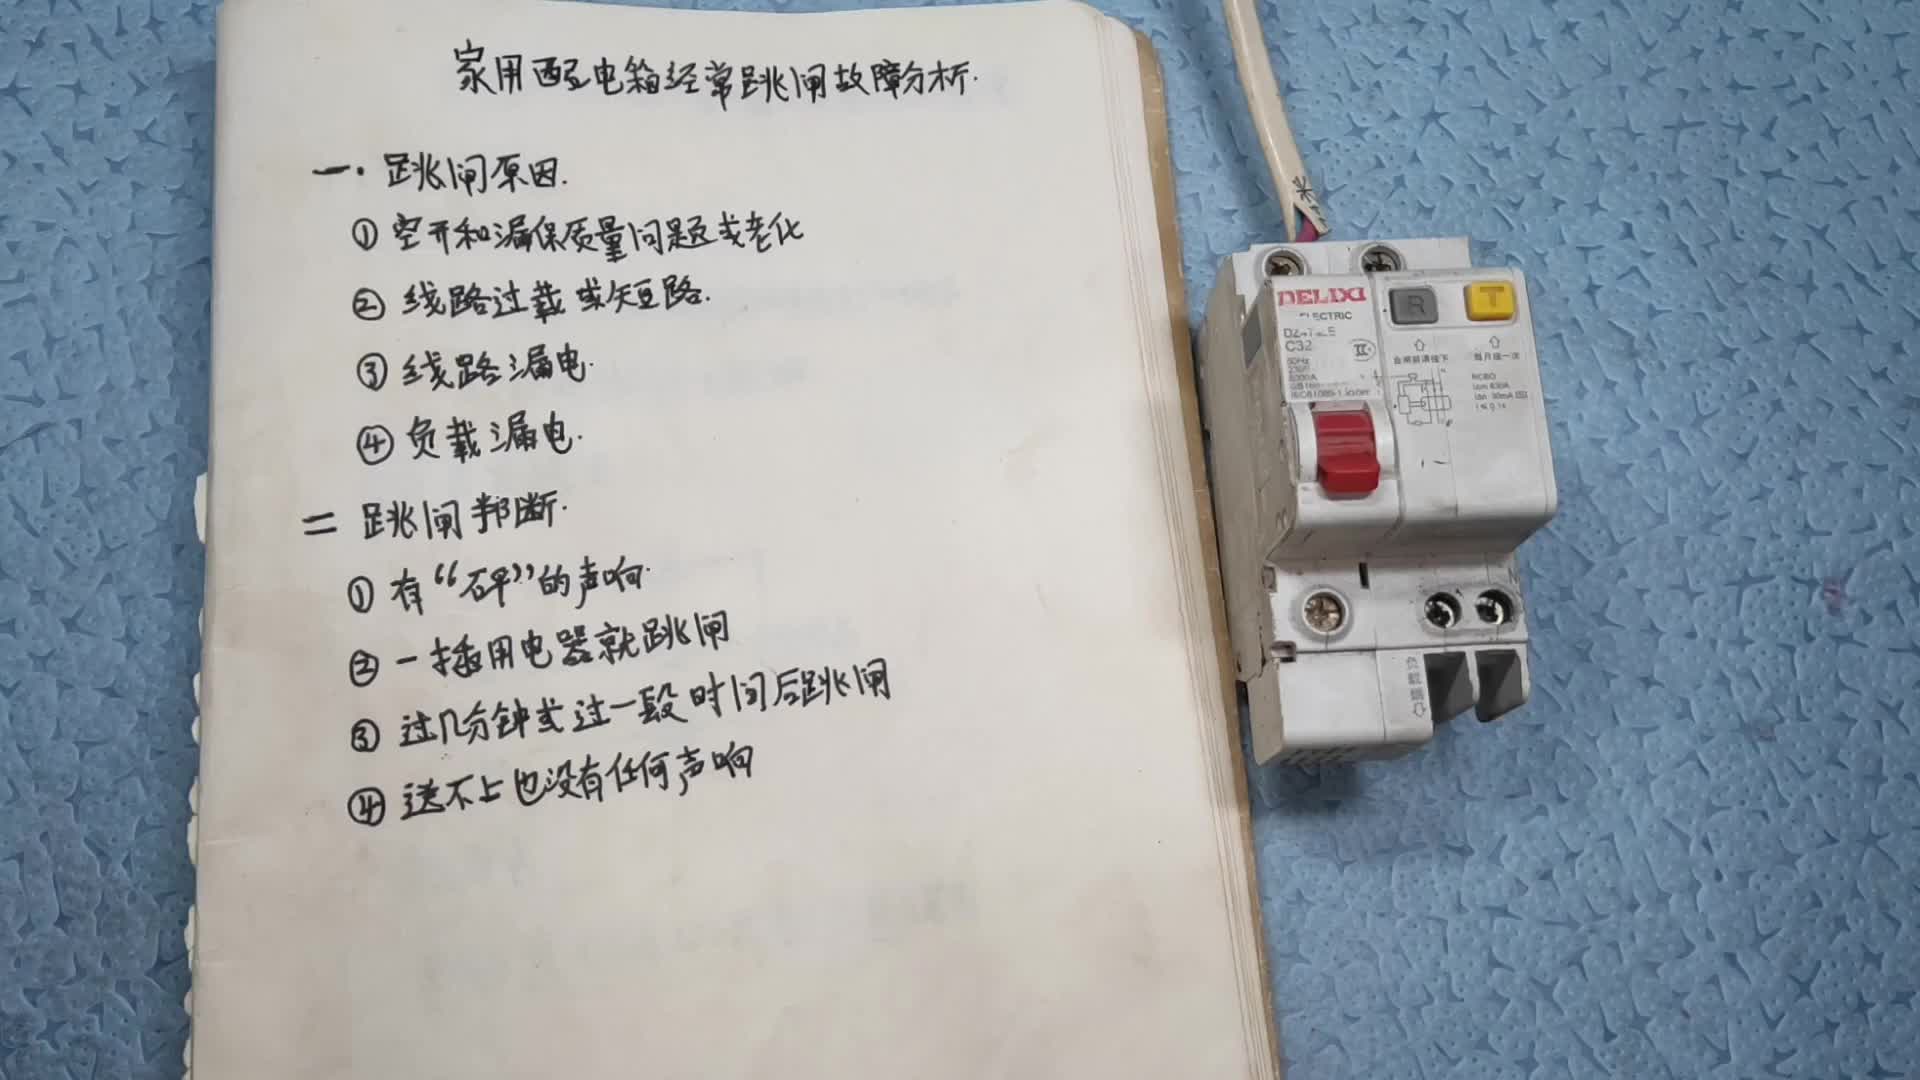 家用配电箱经常跳闸故障分析.
一. 跳闸原因.
① 空开和漏保质量问题或老化
② 线路过载或短路.
③ 线路漏电.
④ 负载漏电.
二 跳闸判断.
① 有“砰”的声响.
② 一插用电器就跳闸
③ 过几分钟或过一段时间后跳闸
④ 送不上也没有任何声响
DELIXI
ELECTRIC
C32
50Hz
6000A
R
T
合闸前请按下
每月按一次
RCBO
N
负载端